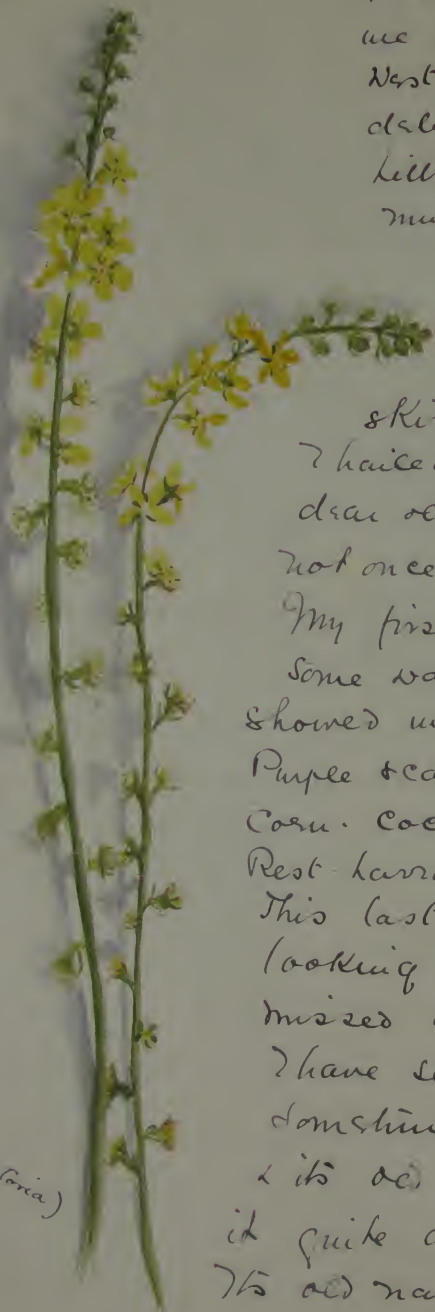 me
West
dale
hill
mu
ski
I haile
dear
not once
My firs
Some wa
showed
Purple sca
Corn. coc
Rest harr
This last
looking
missed
I have se
sometim
& its
it quite
Its old na
oria)